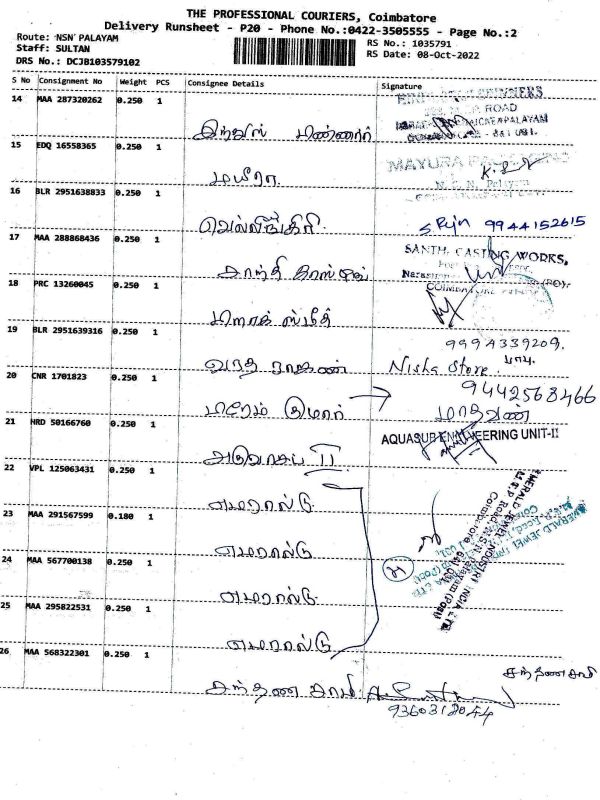 THE PROFESSIONAL COURIERS, Coimbatore
Delivery Runsheet - P20 - Phone No.:0422-3505555 - Page No.:2
Route: 'NSN' PALAYAM
Staff: SULTAN
DRS No.: DCJB103579102
RS No.: 1035791
RS Date: 08-Oct-2022
S No Consignment No Weight PCS Consignee Details Signature
14 MAA 287320262 0.250 1
ROAD
15 EDQ 16558365 0.250 1
MAYURA
மயூரா
16 BLR 2951638833 0.250 1
வெள்ளிங்கிரி
9944152615
17 MAA 288868436 0.250 1
SANTHI CASTING WORKS,
சாந்தி காஸ்டிங்
COIMBATORE
18 PRC 13260045 0.250 1
19 BLR 2951639316 0.250 1
9994339209.
Nisha Store
20 CNR 1701823 0.250 1
9442568466
மாதவன்
21 HRD 50166760 0.250 1
AQUASUB ENGINEERING UNIT-II
அக்வாசப் II
22 VPL 125063431 0.250 1
எமரால்டு
23 MAA 291567599 0.180 1
எமரால்டு
EMERALD JEWEL INDUSTRY INDIA LTD
24 MAA 567700138 0.250 1
எமரால்டு
25 MAA 295822531 0.250 1
எமரால்டு
26 MAA 568322301 0.250 1
சந்தணசாமி
சந்தண சாமி
9360318044